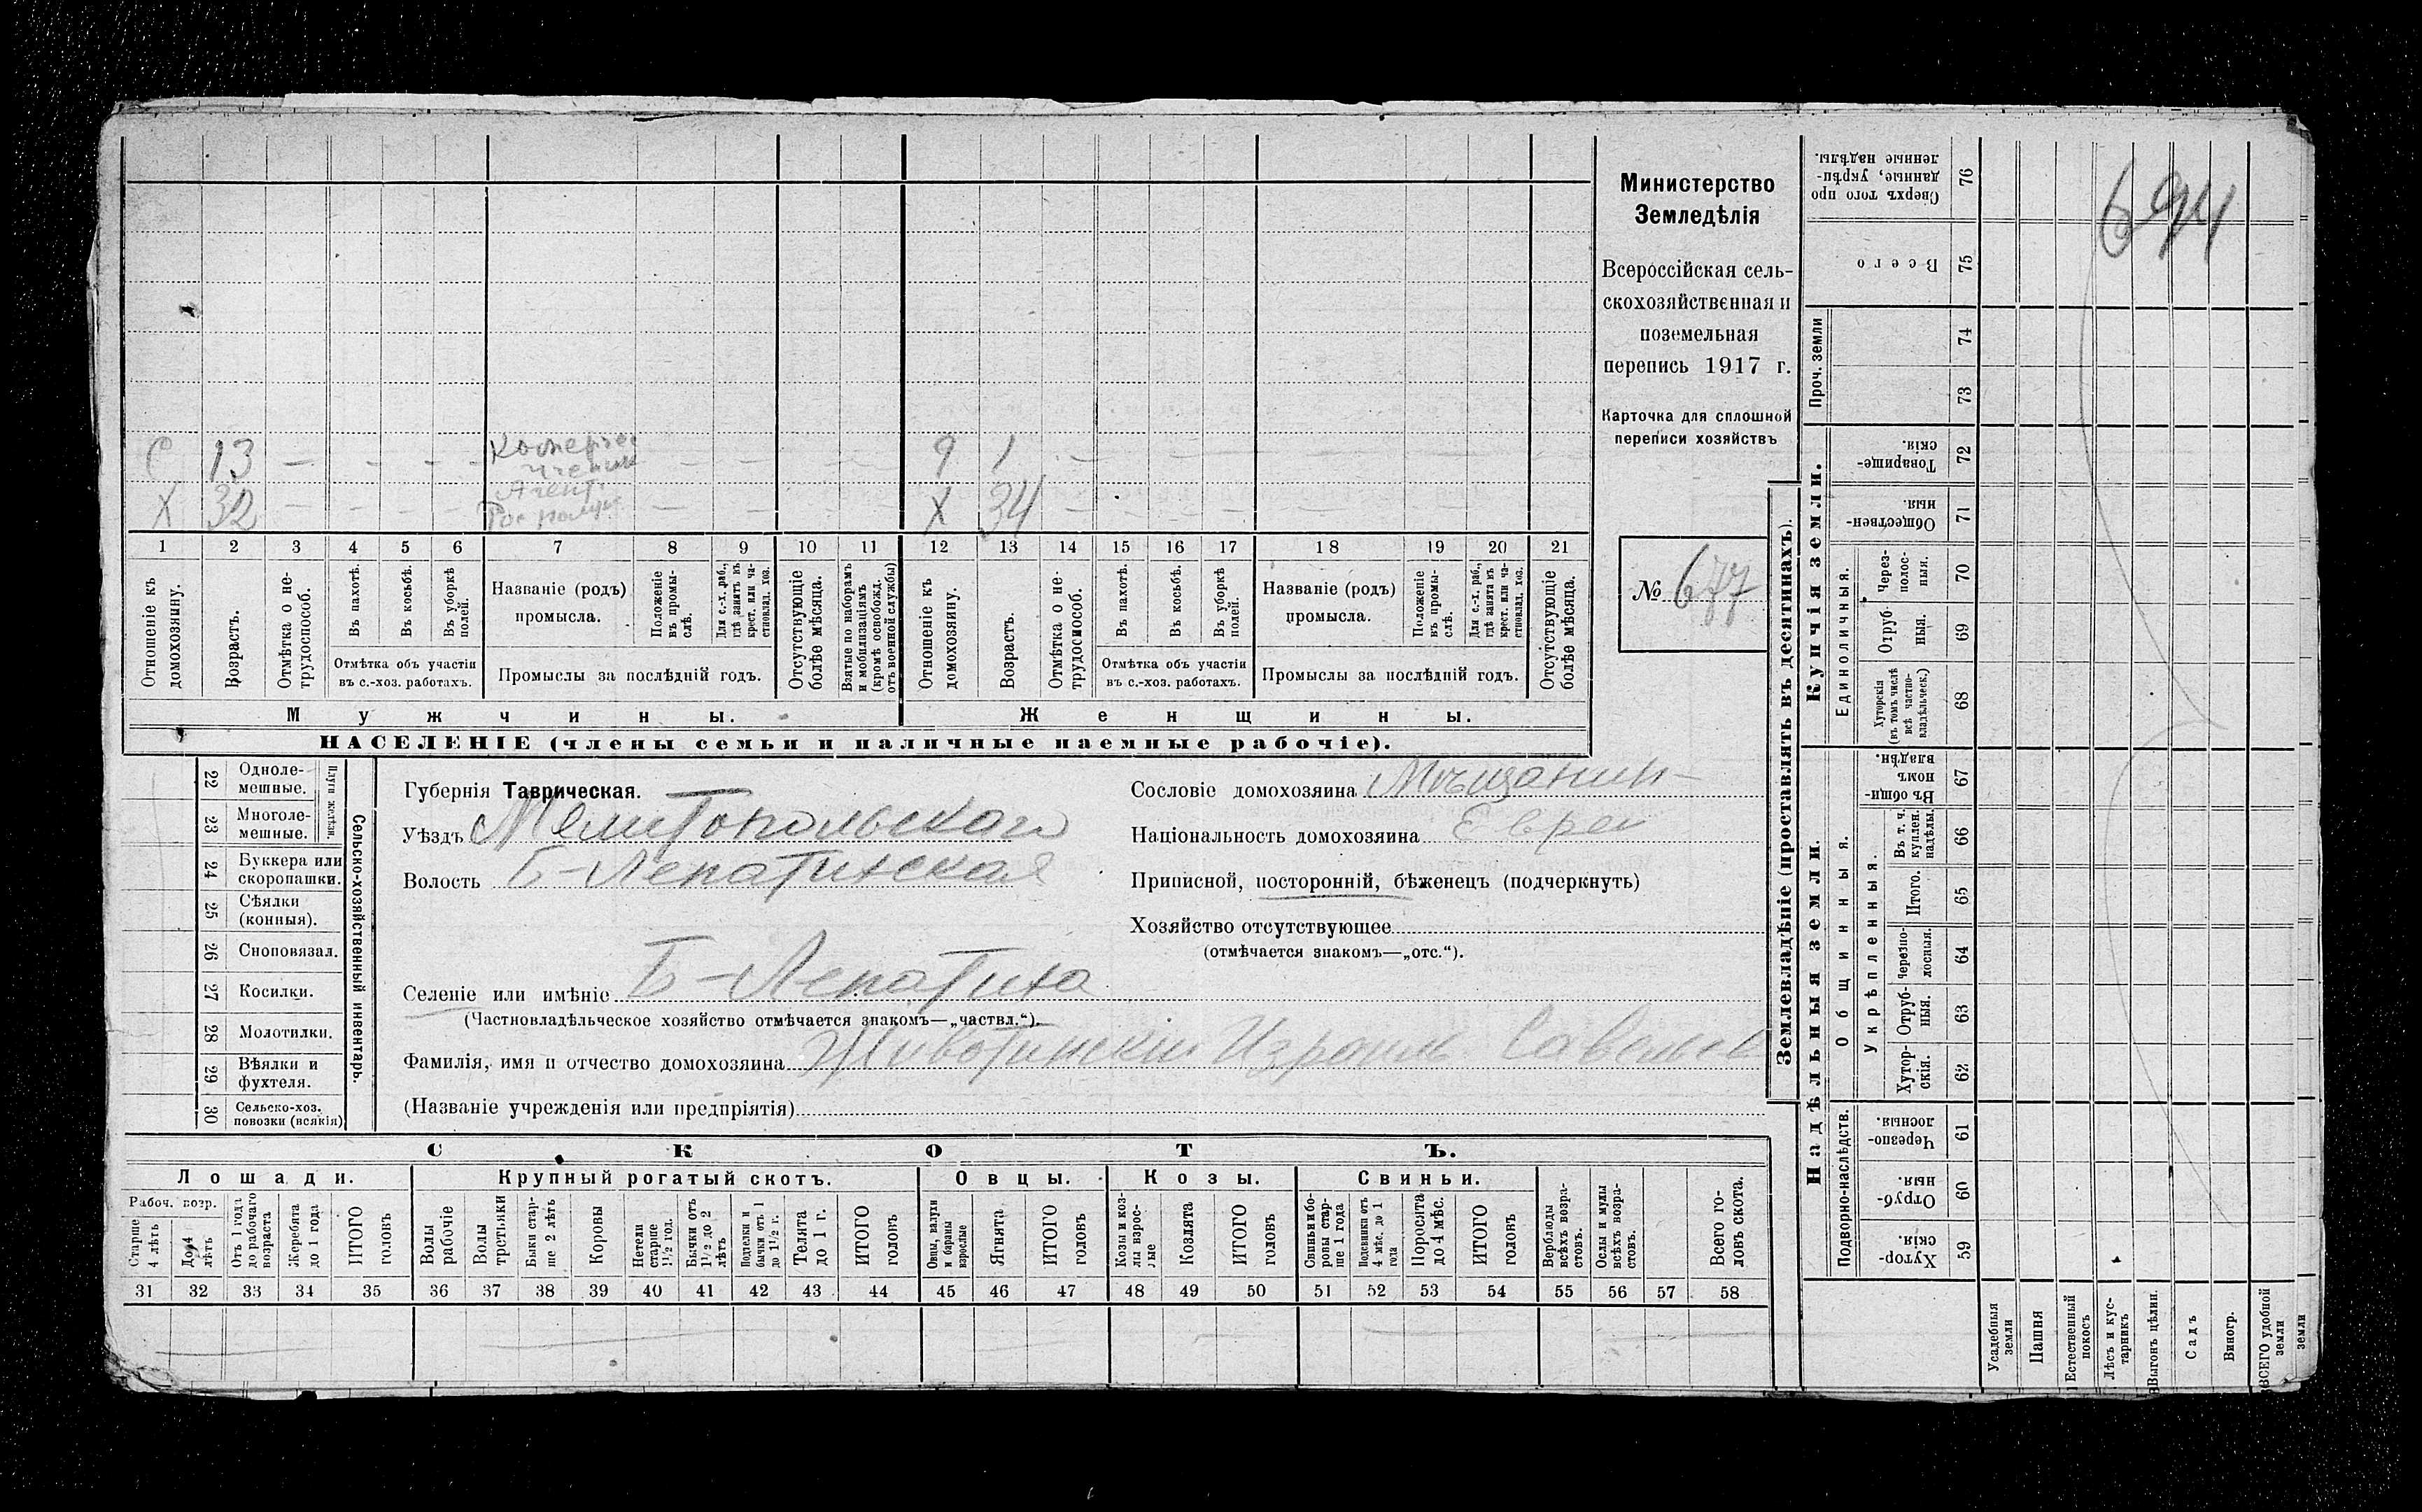 694
Министерство
Земледѣлія
Всероссійская сель-
скохозяйственная и
поземельная
перепись 1917 г.
Карточка для сплошной
переписи хозяйствъ
№ 677
С 13 — — — — — — — 9 1 —
Х 32 — — — — Агент — — — Х 34 — — —
1 2 3 4 5 6 7 8 9 10 11 12 13 14 15 16 17 18 19 20 21
Отношеніе къ домохозяину.
Возрастъ.
Отмѣтка о не-трудоспособ.
Въ пахотѣ.
Въ косьбѣ.
Въ уборкѣ полей.
Отмѣтка объ участіи
въ с.-хоз. работахъ.
Названіе (родъ)
промысла.
Положеніе въ промы-слѣ.
Для с.-х. раб., гдѣ занятъ въ крест. или ча-стновлад. хоз.
Промыслы за послѣдній годъ.
Отсутствующіе болѣе мѣсяца.
Взятые по наборамъ и мобилизаціямъ (кромѣ освобожд. отъ военной службы)
Отношеніе къ домохозяину.
Возрастъ.
Отмѣтка о не-трудоспособ.
Въ пахотѣ.
Въ косьбѣ.
Въ уборкѣ полей.
Отмѣтка объ участіи
въ с.-хоз. работахъ.
Названіе (родъ)
промысла.
Положеніе въ промы-слѣ.
Для с.-х. раб., гдѣ занята въ крест. или ча-стновлад. хоз.
Промыслы за послѣдній годъ.
Отсутствующіе болѣе мѣсяца.
Мужчины.
Женщины.
НАСЕЛЕНІЕ (члены семьи и наличные наемные рабочіе).
22 Одноле-мешные.
23 Многоле-мешные.
24 Буккера или скоропашки.
25 Сѣялки (конныя).
26 Сноповязал.
27 Косилки.
28 Молотилки.
29 Вѣялки и фухтеля.
30 Сельско-хоз. повозки (всякія)
Сельско-хозяйственный инвентарь.
Губернія Таврическая.
Уѣздъ Мелитопольскаго
Волость Б-Лепатихская
Селеніе или имѣніе Б-Лепатиха
(Частновладѣльческое хозяйство отмѣчается знакомъ—„частвл.“).
Фамилія, имя и отчество домохозяина Животинскій Израиль Савельев
(Названіе учрежденія или предпріятія)
Сословіе домохозяина Мѣщанин
Національность домохозяина Еврей
Приписной, посторонній, бѣженецъ (подчеркнуть)
Хозяйство отсутствующее
(отмѣчается знакомъ—„отс.“).
СКОТЪ.
Лошади.
Крупный рогатый скотъ.
Овцы.
Козы.
Свиньи.
Рабоч. возр.
Старше 4 лѣтъ
До 4 лѣтъ
Отъ 1 года до рабочаго возраста
Жеребята до 1 года
ИТОГО головъ
Волы рабочіе
Волы третьяки
Быки стар-ше 2 лѣтъ
Коровы
Нетели старше 1½ год.
Бычки отъ 1½ до 2 лѣтъ
Подтелки и бычки отъ 1 до 1½ г.
Телята до 1 г.
ИТОГО головъ
Овцы, валухи и бараны взрослые
Ягнята
ИТОГО головъ
Козы и коз-лы взрос-лые
Козлята
ИТОГО головъ
Свиньи и бо-ровы стар-ше 1 года
Подсвинки отъ 4 мѣс. до 1 года
Поросята до 4 мѣс.
ИТОГО головъ
Верблюды всѣхъ возра-стовъ.
Ослы и мулы всѣхъ возра-стовъ.
Всего го-ловъ скота.
31 32 33 34 35 36 37 38 39 40 41 42 43 44 45 46 47 48 49 50 51 52 53 54 55 56 57 58
Землевладѣніе (проставлять въ десятинахъ).
Надѣльныя земли.
Купчія земли.
Подворно-наслѣдств.
Общинныя.
Укрѣпленныя.
Единоличныя.
Проч. земли
76 Сверхъ того про данные, укрѣп-ленные надѣлы.
75 Всего
74
73
72 Товарище-скія.
71 Обществен-ныя
70 Через-полос-ныя.
69 Отруб-ныя.
68 Хуторскія (въ томъ числѣ всѣ частно-владѣльческ.)
67 Въ общи-номъ владѣн.
66 Въ т. ч. куплен. надѣлы.
65 Итого.
64 Черезпо-лосныя.
63 Отруб-ныя.
62 Хутор-скія.
61 Черезпо-лосныя.
60 Отруб-ныя.
59 Хутор-скія.
Усадебныя земли
Пашня
Естественный покосъ
Лѣсъ и кус-тарникъ
Выгонъ цѣлин.
Садъ
Виногр.
ВСЕГО удобной земли
земли